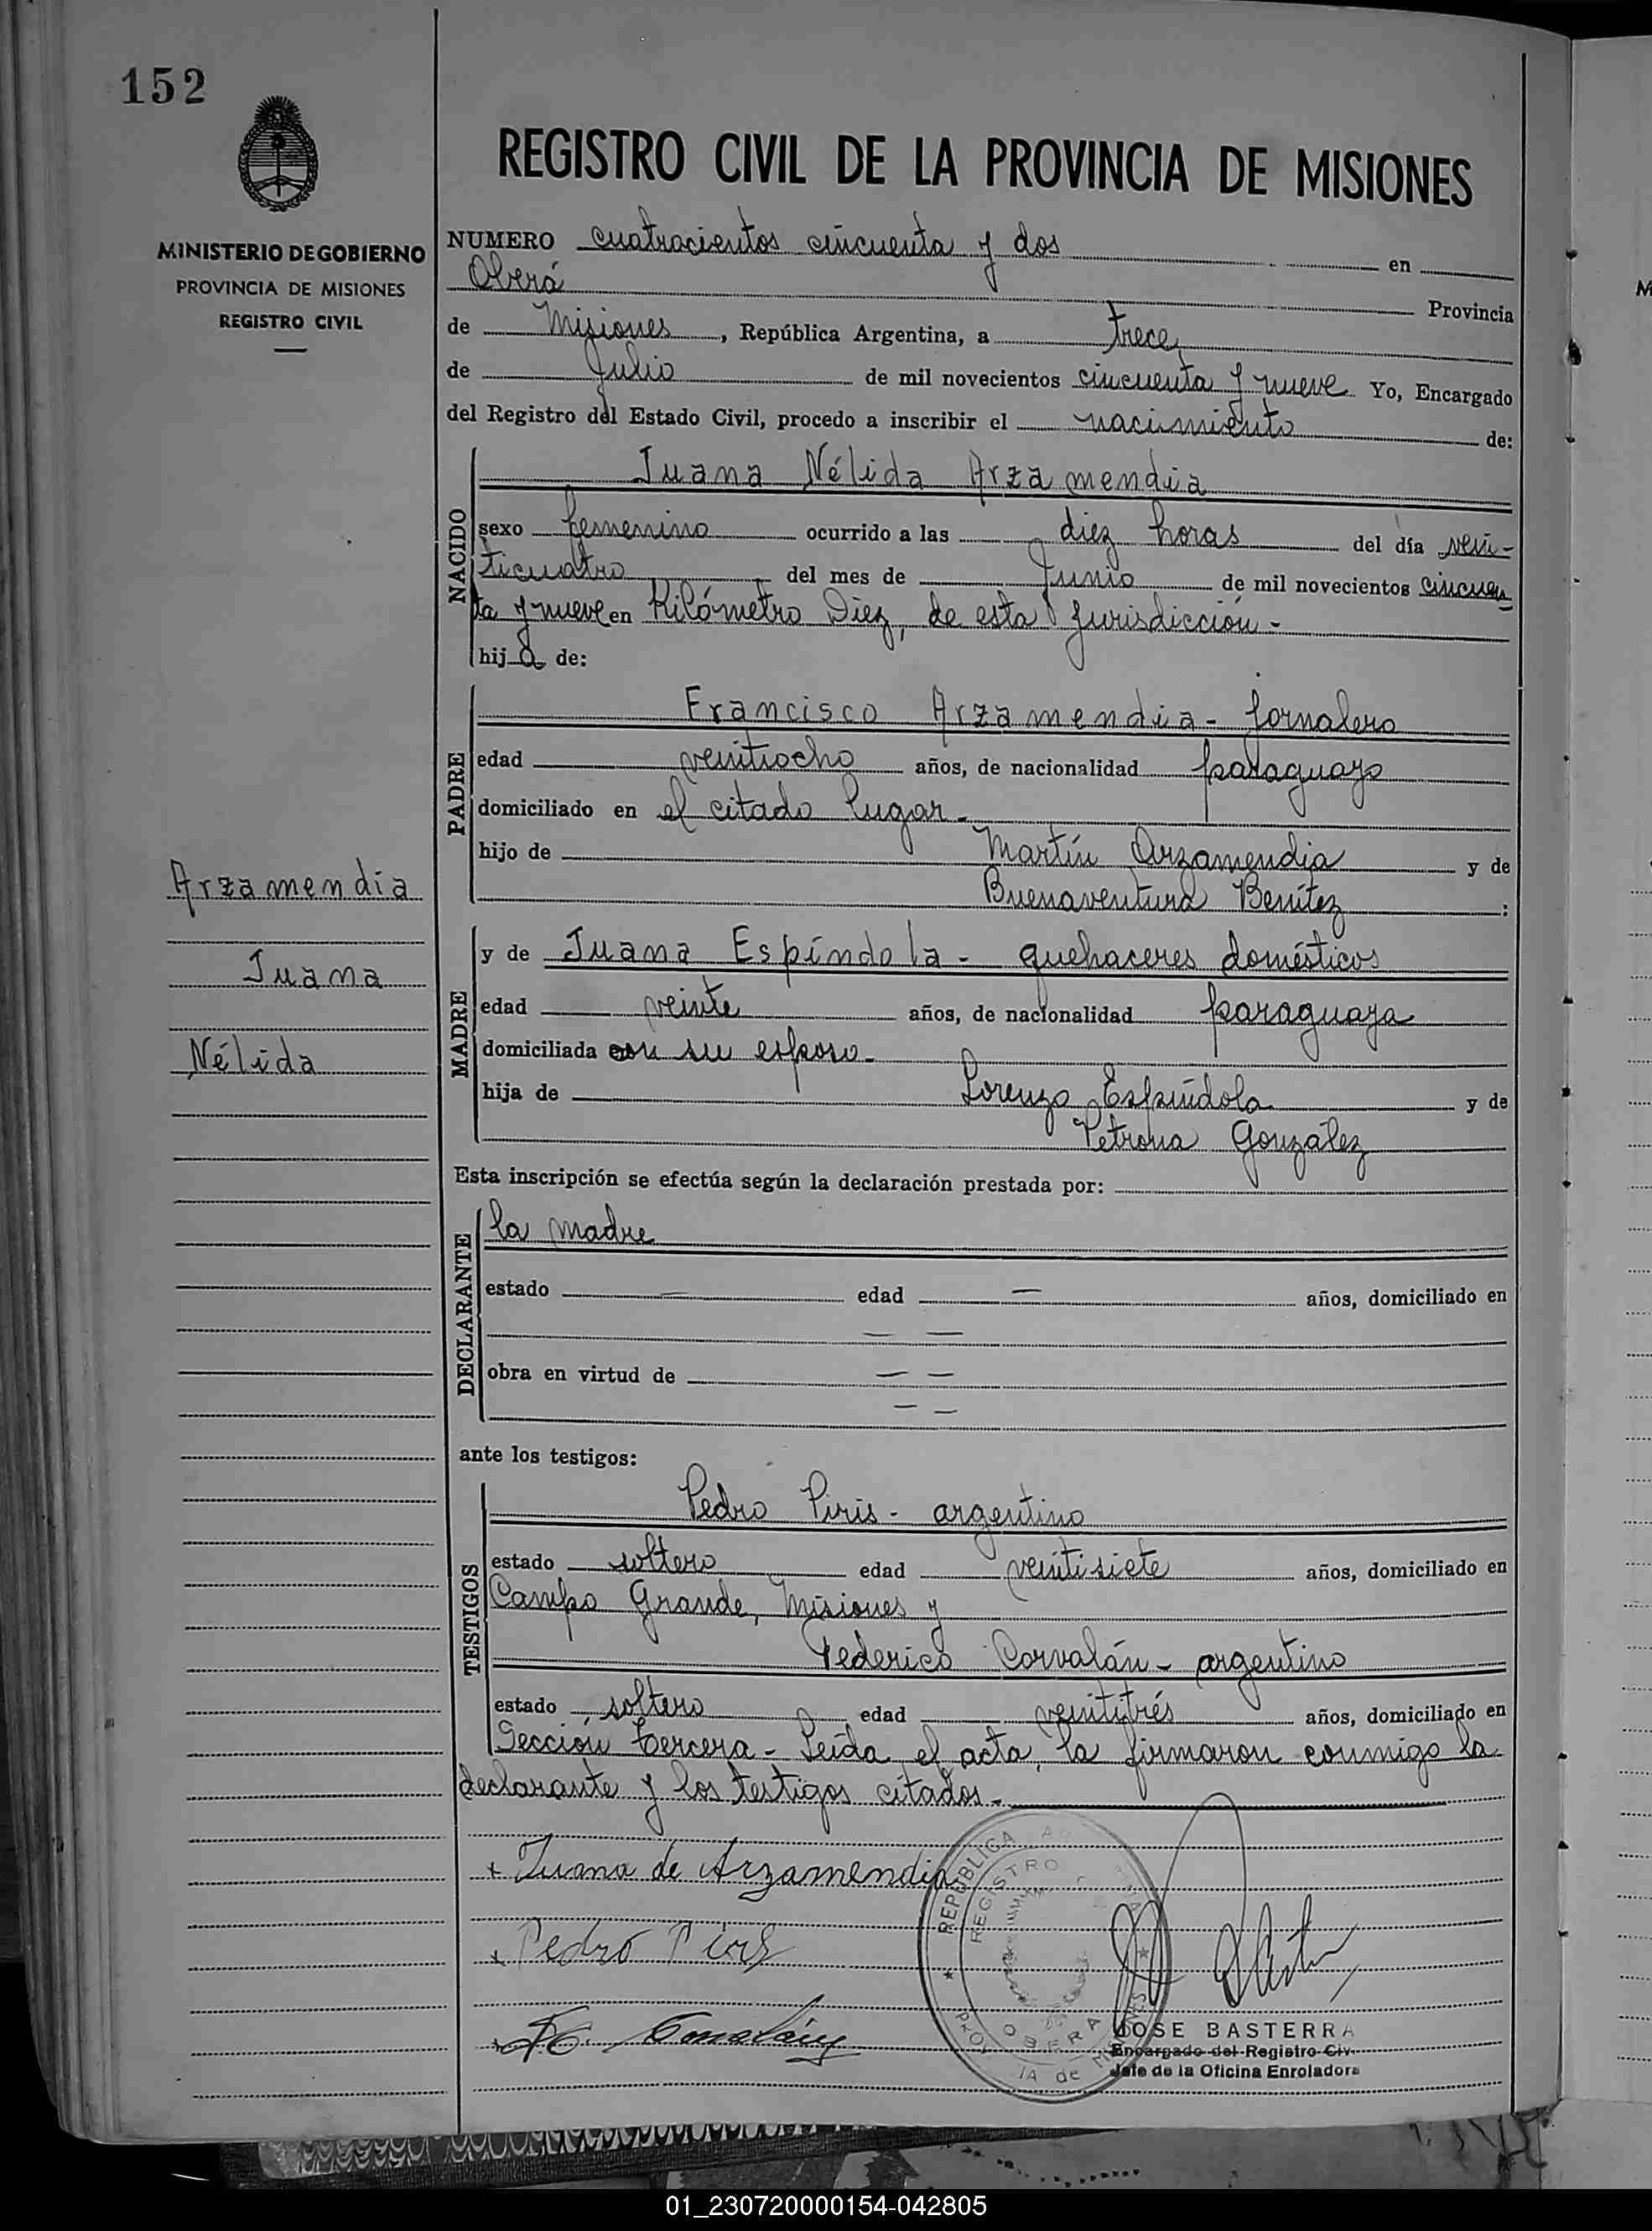 152
MINISTERIO DE GOBIERNO
PROVINCIA DE MISIONES
REGISTRO CIVIL
Arzamendia
Juana
Nélida
REGISTRO CIVIL DE LA PROVINCIA DE MISIONES
NUMERO cuatrocientos cincuenta y dos en
Oberá Provincia
de Misiones, República Argentina, a trece
de Julio de mil novecientos cincuenta y nueve Yo, Encargado
del Registro del Estado Civil, procedo a inscribir el nacimiento de:
NACIDO
Juana Nélida Arzamendia
sexo femenino ocurrido a las diez horas del día vein-
ticuatro del mes de Junio de mil novecientos cincuen
ta y nueve en Kilómetro Diez, de esta Jurisdicción -
hija de:
PADRE
Francisco Arzamendia - Jornalero
edad veintiocho años, de nacionalidad paraguayo
domiciliado en el citado lugar -
hijo de Martín Arzamendia y de
Buenaventura Benítez :
MADRE
y de Juana Espíndola - quehaceres domésticos
edad veinte años, de nacionalidad paraguaya
domiciliada con su esposo -
hija de Lorenzo Espíndola y de
Petrona González
Esta inscripción se efectúa según la declaración prestada por:
DECLARANTE
la madre
estado — edad — años, domiciliado en
— —
obra en virtud de — —
— —
ante los testigos:
TESTIGOS
Pedro Piris - argentino
estado soltero edad veintisiete años, domiciliado en
Campo Grande, Misiones y
Federico Corvalán - argentino
estado soltero edad veintitrés años, domiciliado en
Sección tercera - Leída el acta, la firmaron conmigo la
declarante y los testigos citados -
+ Juana de Arzamendia
+ Pedro Piris
REPÚBLICA
REGISTRO
OBERA
JOSE BASTERRA
Encargado del Registro Civ.
Jefe de la Oficina Enroladora
01_230720000154-042805